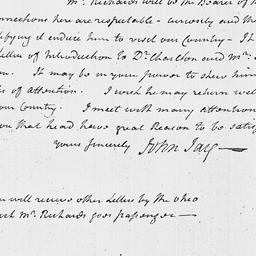 Mr. Richards will be the Bearer of
nnections here are respectable – curiosity and
induce him to visit our Country – It
Letters of Introduction to Dr. Charlton and Mr.
on. It may be in your power to shew him
s of attention. I wish he may return well
our Country. I meet with many attentions
on that head have great Reason to be satis
yours sincerely John Jay —
u will receive other Letters by the Ohio
Mr. Richards goes passenger —